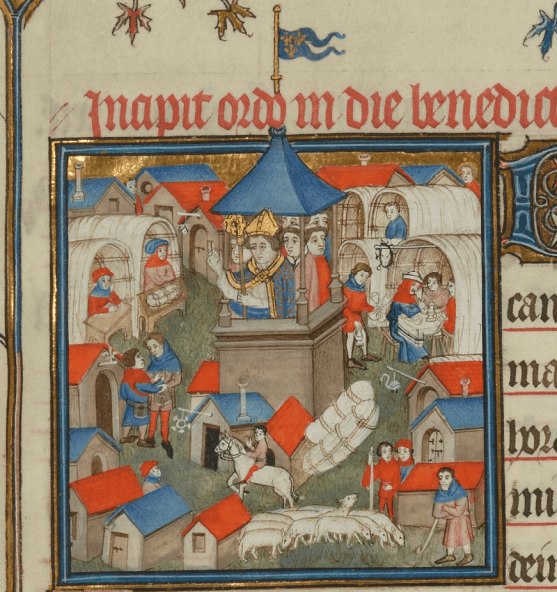 Incipit ordo in die benedic
can
ma
bor
mi
dein